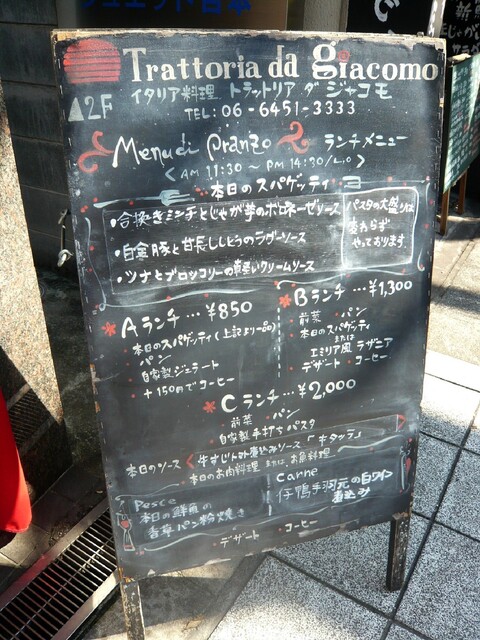 Trattoria da giacomo
イタリア料理 トラットリア ダ ジャコモ
▲2F
TEL:06-6451-3333
Menu di pranzo ランチメニュー
<AM 11:30 ~ PM 14:30/L.O>
本日のスパゲッティ
・合挽きミンチとじゃが芋のボロネーゼソース
・白金豚と甘長ししとうのラグーソース
・ツナとブロッコリーの クリームソース
パスタの大盛りは
やっております
Aランチ…¥850
・本日のスパゲッティ(上記より一品)
パン
自家製ジェラート
+150円でコーヒー
Bランチ…¥1,300
・前菜 ・パン
・本日のスパゲッティ
または
エミリア風ラザニア
・デザート・コーヒー
Cランチ…¥2,000
・前菜 ・パン
自家製手打ちパスタ
本日のソース
牛すじトマト煮込みソース「キタッラ」
・本日のお肉料理 または お魚料理
Pesce
本日の鮮魚の
香草パン粉焼き
Carne
仔鴨手羽元の白ワイン
煮込み
・デザート ・コーヒー